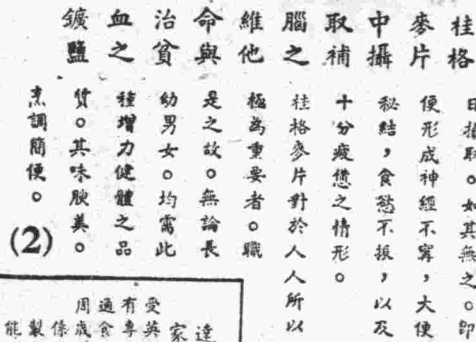 桂格
麥片
中攝
取補
腦之
維他
命與
治貧
血之
鑛鹽
日攝取。如其無之。即
便形成神經不寧，大便
秘結，食慾不振，以及
十分疲憊之情形。
桂格麥片對於人人所以
極為重要者。職
是之故。無論長
幼男女。均需此
種增力健體之品
貨。其味腴美。
烹調簡便。
(2)
達
家
受英
有專
通食
周歲
係
製
能